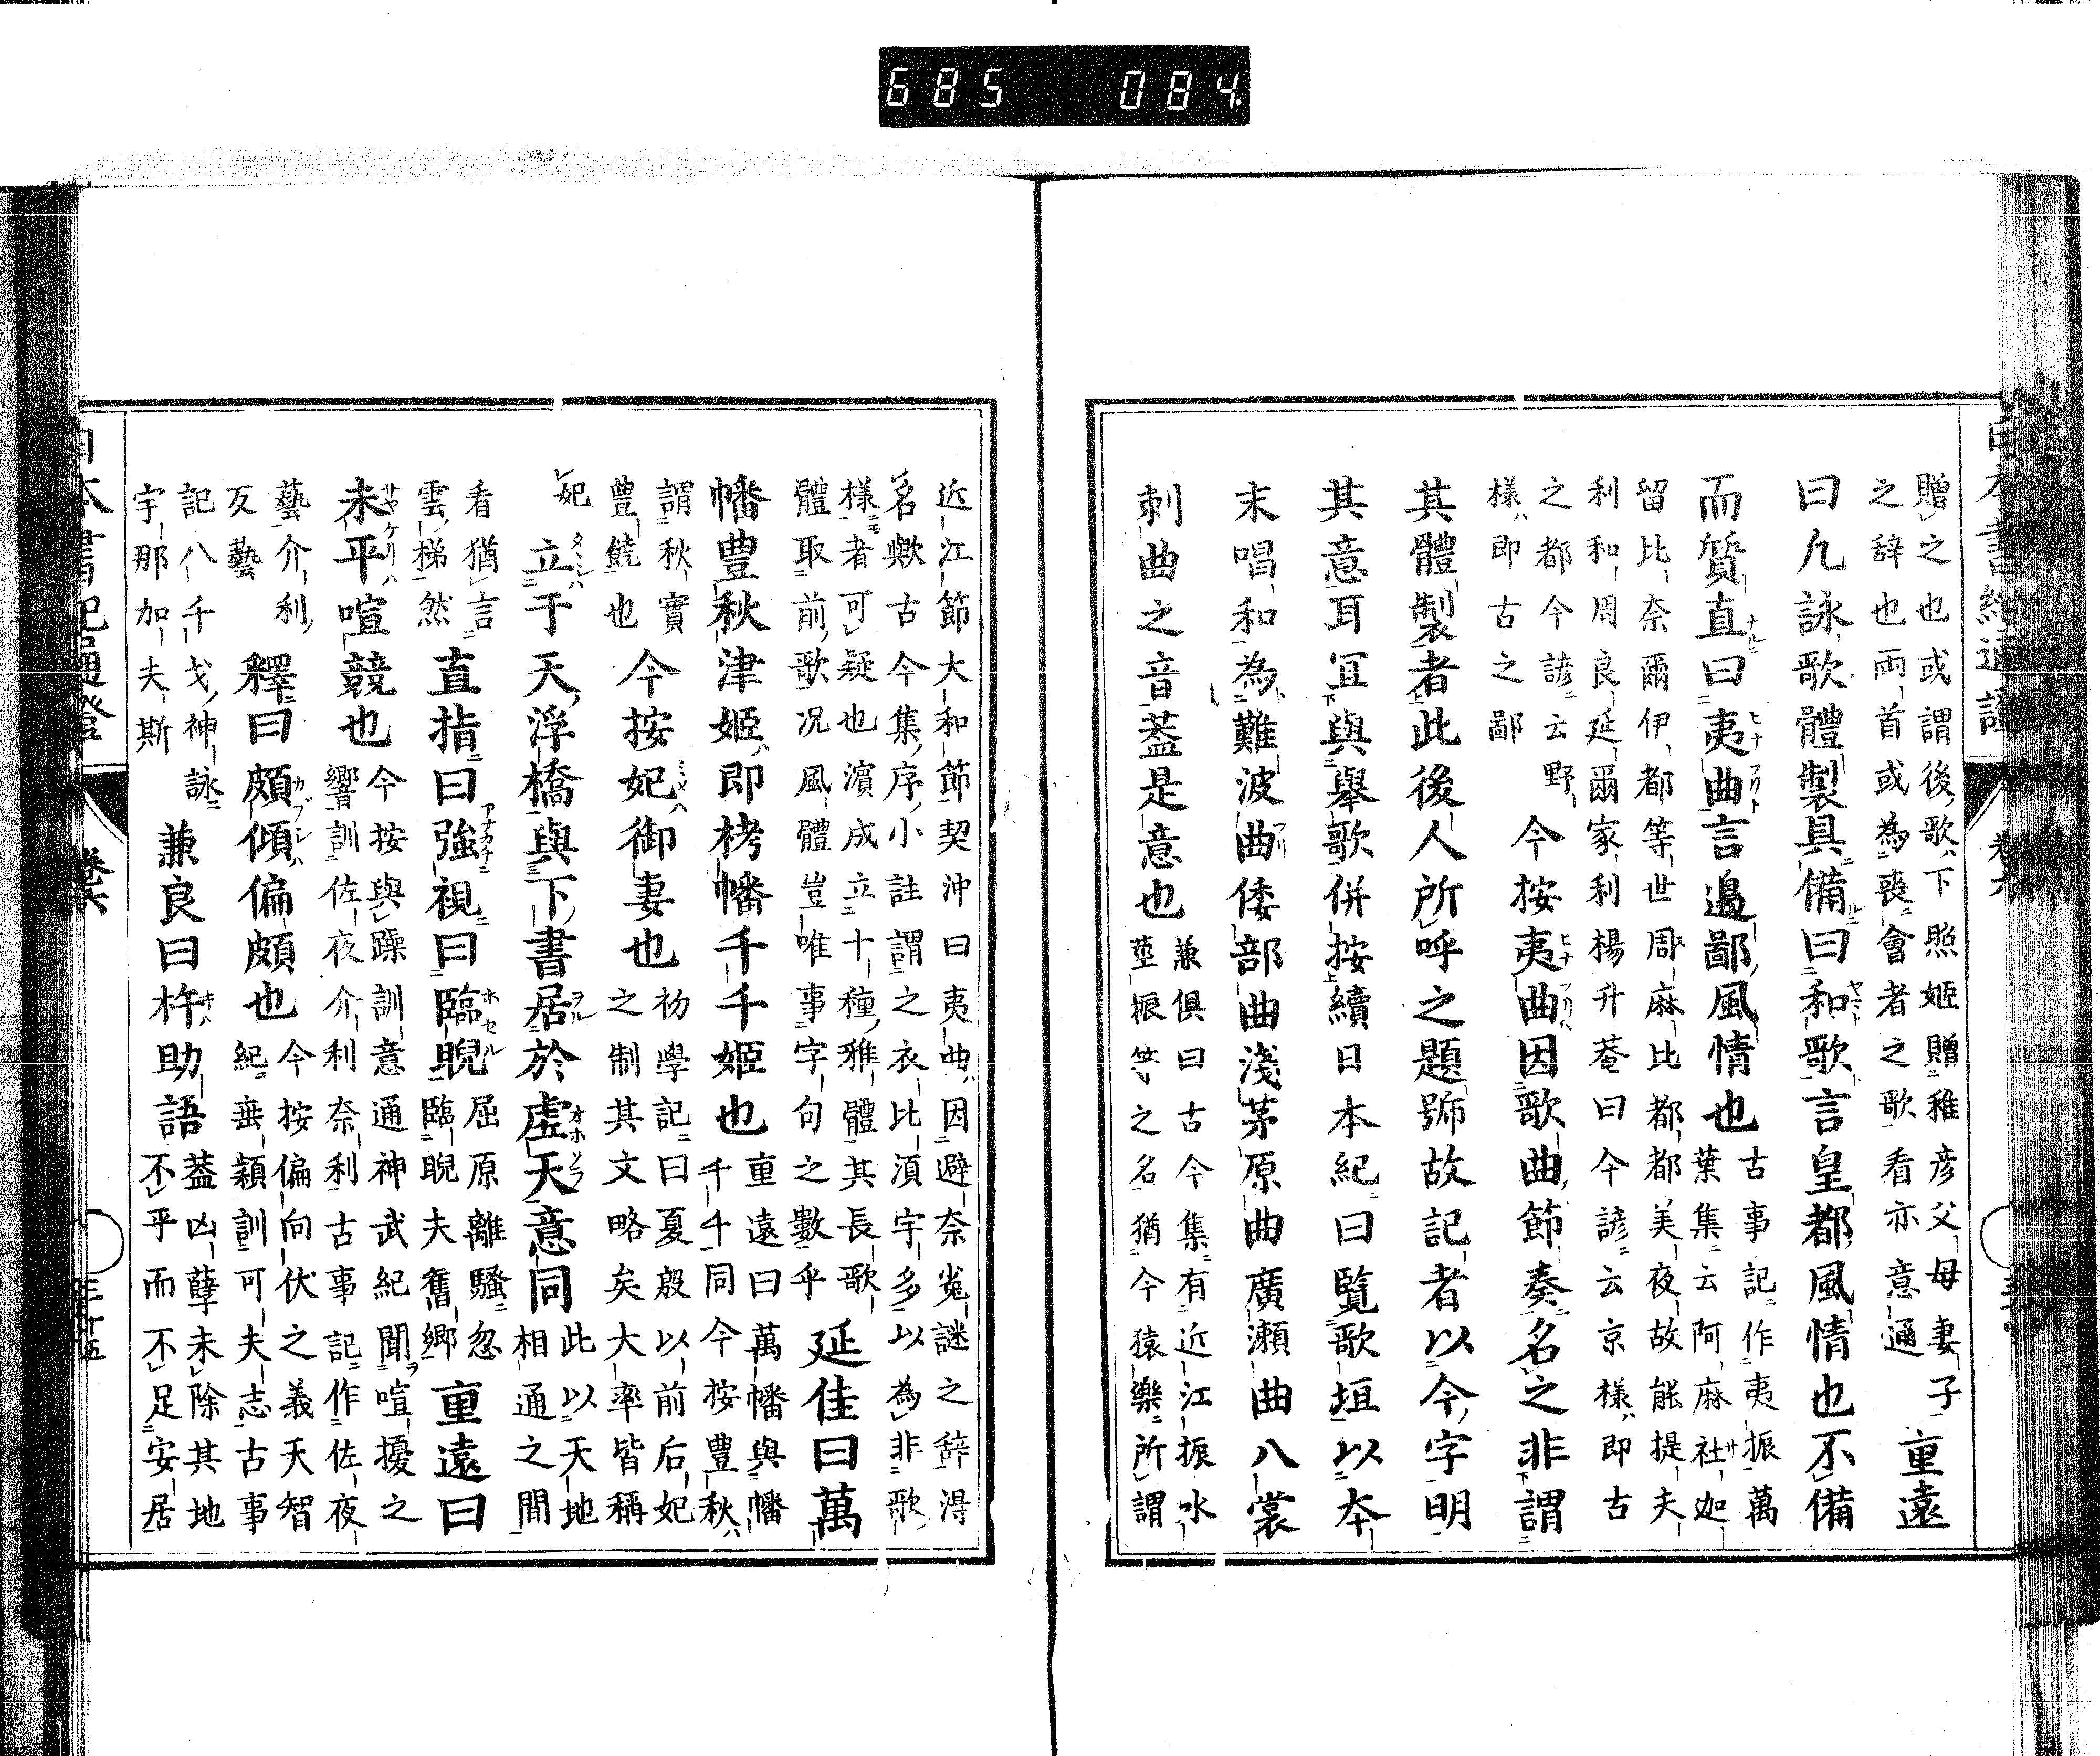 685 084
贈之也或謂後歌下照姬贈稚彦父母妻子
之辞也兩首或為喪會者之歌看亦意通
重遠
曰凢詠歌體製具備曰和歌言皇都風情也不備
而質直曰夷曲言邉鄙風情也
古事記作夷振萬
葉集云阿麻社迦
留比奈爾伊都等世周麻比都都美夜故能提夫
利和周良延爾家利楊升菴曰今諺云京様即古
之都今諺云野
様即古之鄙
今按夷曲因歌曲節奏名之非謂
其體製者此後人所呼之題号故記者以今字明
其意耳冝與舉歌併按續日本紀曰覧歌垣以本
末唱和為難波曲倭部曲淺茅原曲廣瀬曲八裳
刺曲之音葢是意也
兼俱曰古今集有近江振水
莖振等之名猶今猿樂所謂
日本書紀通證
卷六
近江節大和節契沖曰夷曲因避奈嵬謎之辞淂
名歟古今集序小註謂之衣比湏宇多以為非歌
様者可疑也濵成立十種雅體其長歌
體取前歌况風體豈唯事字句之數乎
延佳曰萬
幡豊秋津姬即栲幡千千姬也
重遠曰萬幡與幡
千千同今按豊秋
謂秋實
豊饒也
今按妃御妻也
礿學記曰夏殷以前后妃
之制其文略矣大率皆稱
妃
立于天浮橋與下書居於虚天意同
此以天地
相通之間
看猶言
雲梯然
直指曰強視曰臨睨
屈原離騷忽
臨睨夫舊鄉
重遠曰
未平喧競也
今按與躁訓意通神武紀聞喧擾之
響訓佐夜介利奈利古事記作佐夜
藝介利
友藝
釋曰頗傾偏頗也
今按偏向伏之義天智
紀垂穎訓可夫志古事
記八千戈神詠
宇那加夫斯
兼良曰杵助語
葢凶孽未除其地
不平而不足安居
日本書紀通證
卷六
三十五